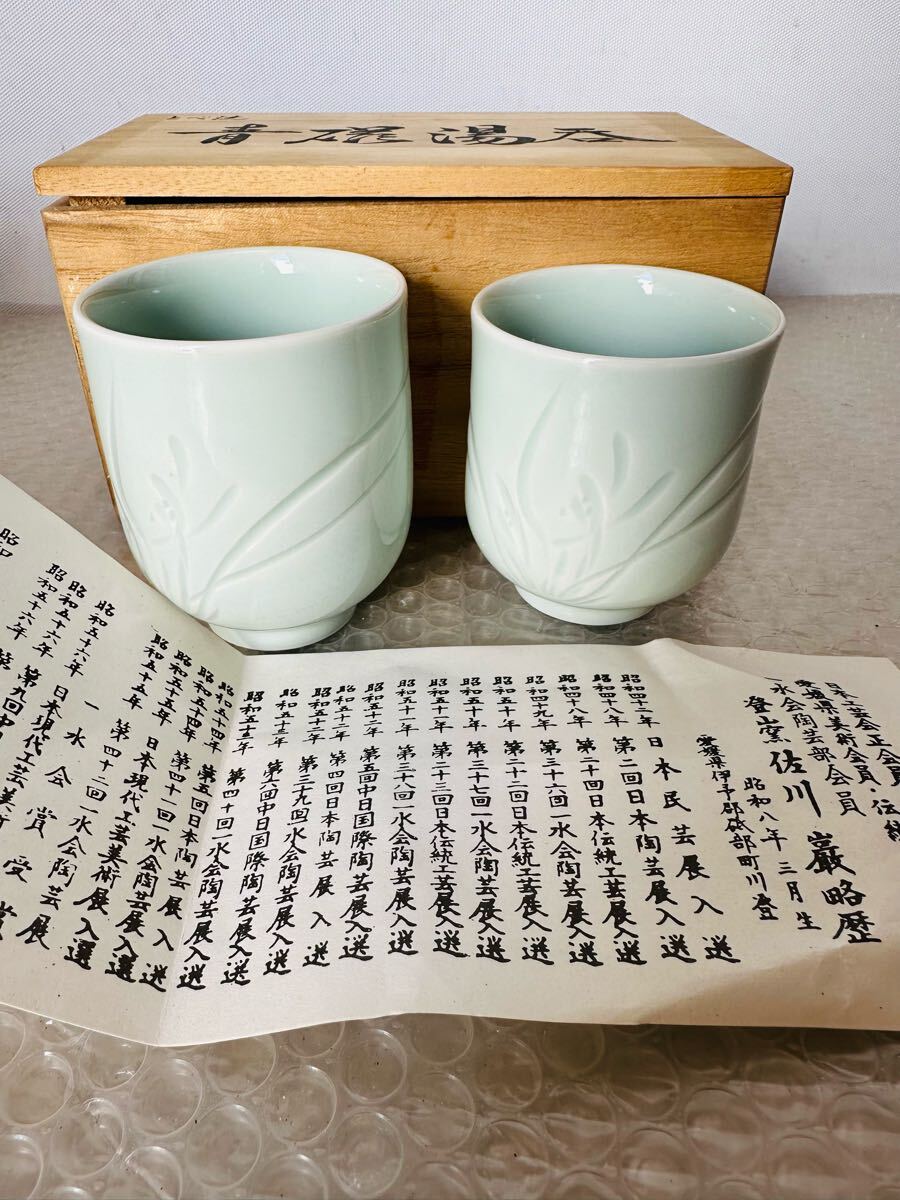 とべ焼
青磁湯呑
日本工芸会正会員
愛媛県美術会員・伝統
一水会陶芸部会員
登山窯 佐川 巖略歴
昭和八年三月生
愛媛県伊予郡砥部町川登
日本民芸展入選
昭和四十二年 第二回日本陶芸展入選
昭和四十八年 第二十回日本伝統工芸展入選
昭和四十八年 第三十五回一水会陶芸展入選
昭和四十九年 第二十二回日本伝統工芸展入選
昭和五十年 第三十七回一水会陶芸展入選
昭和五十一年 第二十三回日本伝統工芸展入選
昭和五十一年 第三十八回一水会陶芸展入選
昭和五十二年 第五回中日国際陶芸展入選
昭和五十二年 第四回日本陶芸展入選
昭和五十二年 第三十九回一水会陶芸展入選
昭和五十三年 第六回中日国際陶芸展入選
昭和五十三年 第四十回一水会陶芸展入選
昭和五十四年 第五回日本陶芸展入選
昭和五十四年 第四十一回一水会陶芸展入選
昭和五十五年 日本現代工芸美術展入選
昭和五十五年 第四十二回一水会陶芸展入選
一水会賞受賞
昭和五十六年 日本現代工芸美術展
昭和五十六年 第九回中日
昭和五十六年 第
昭和